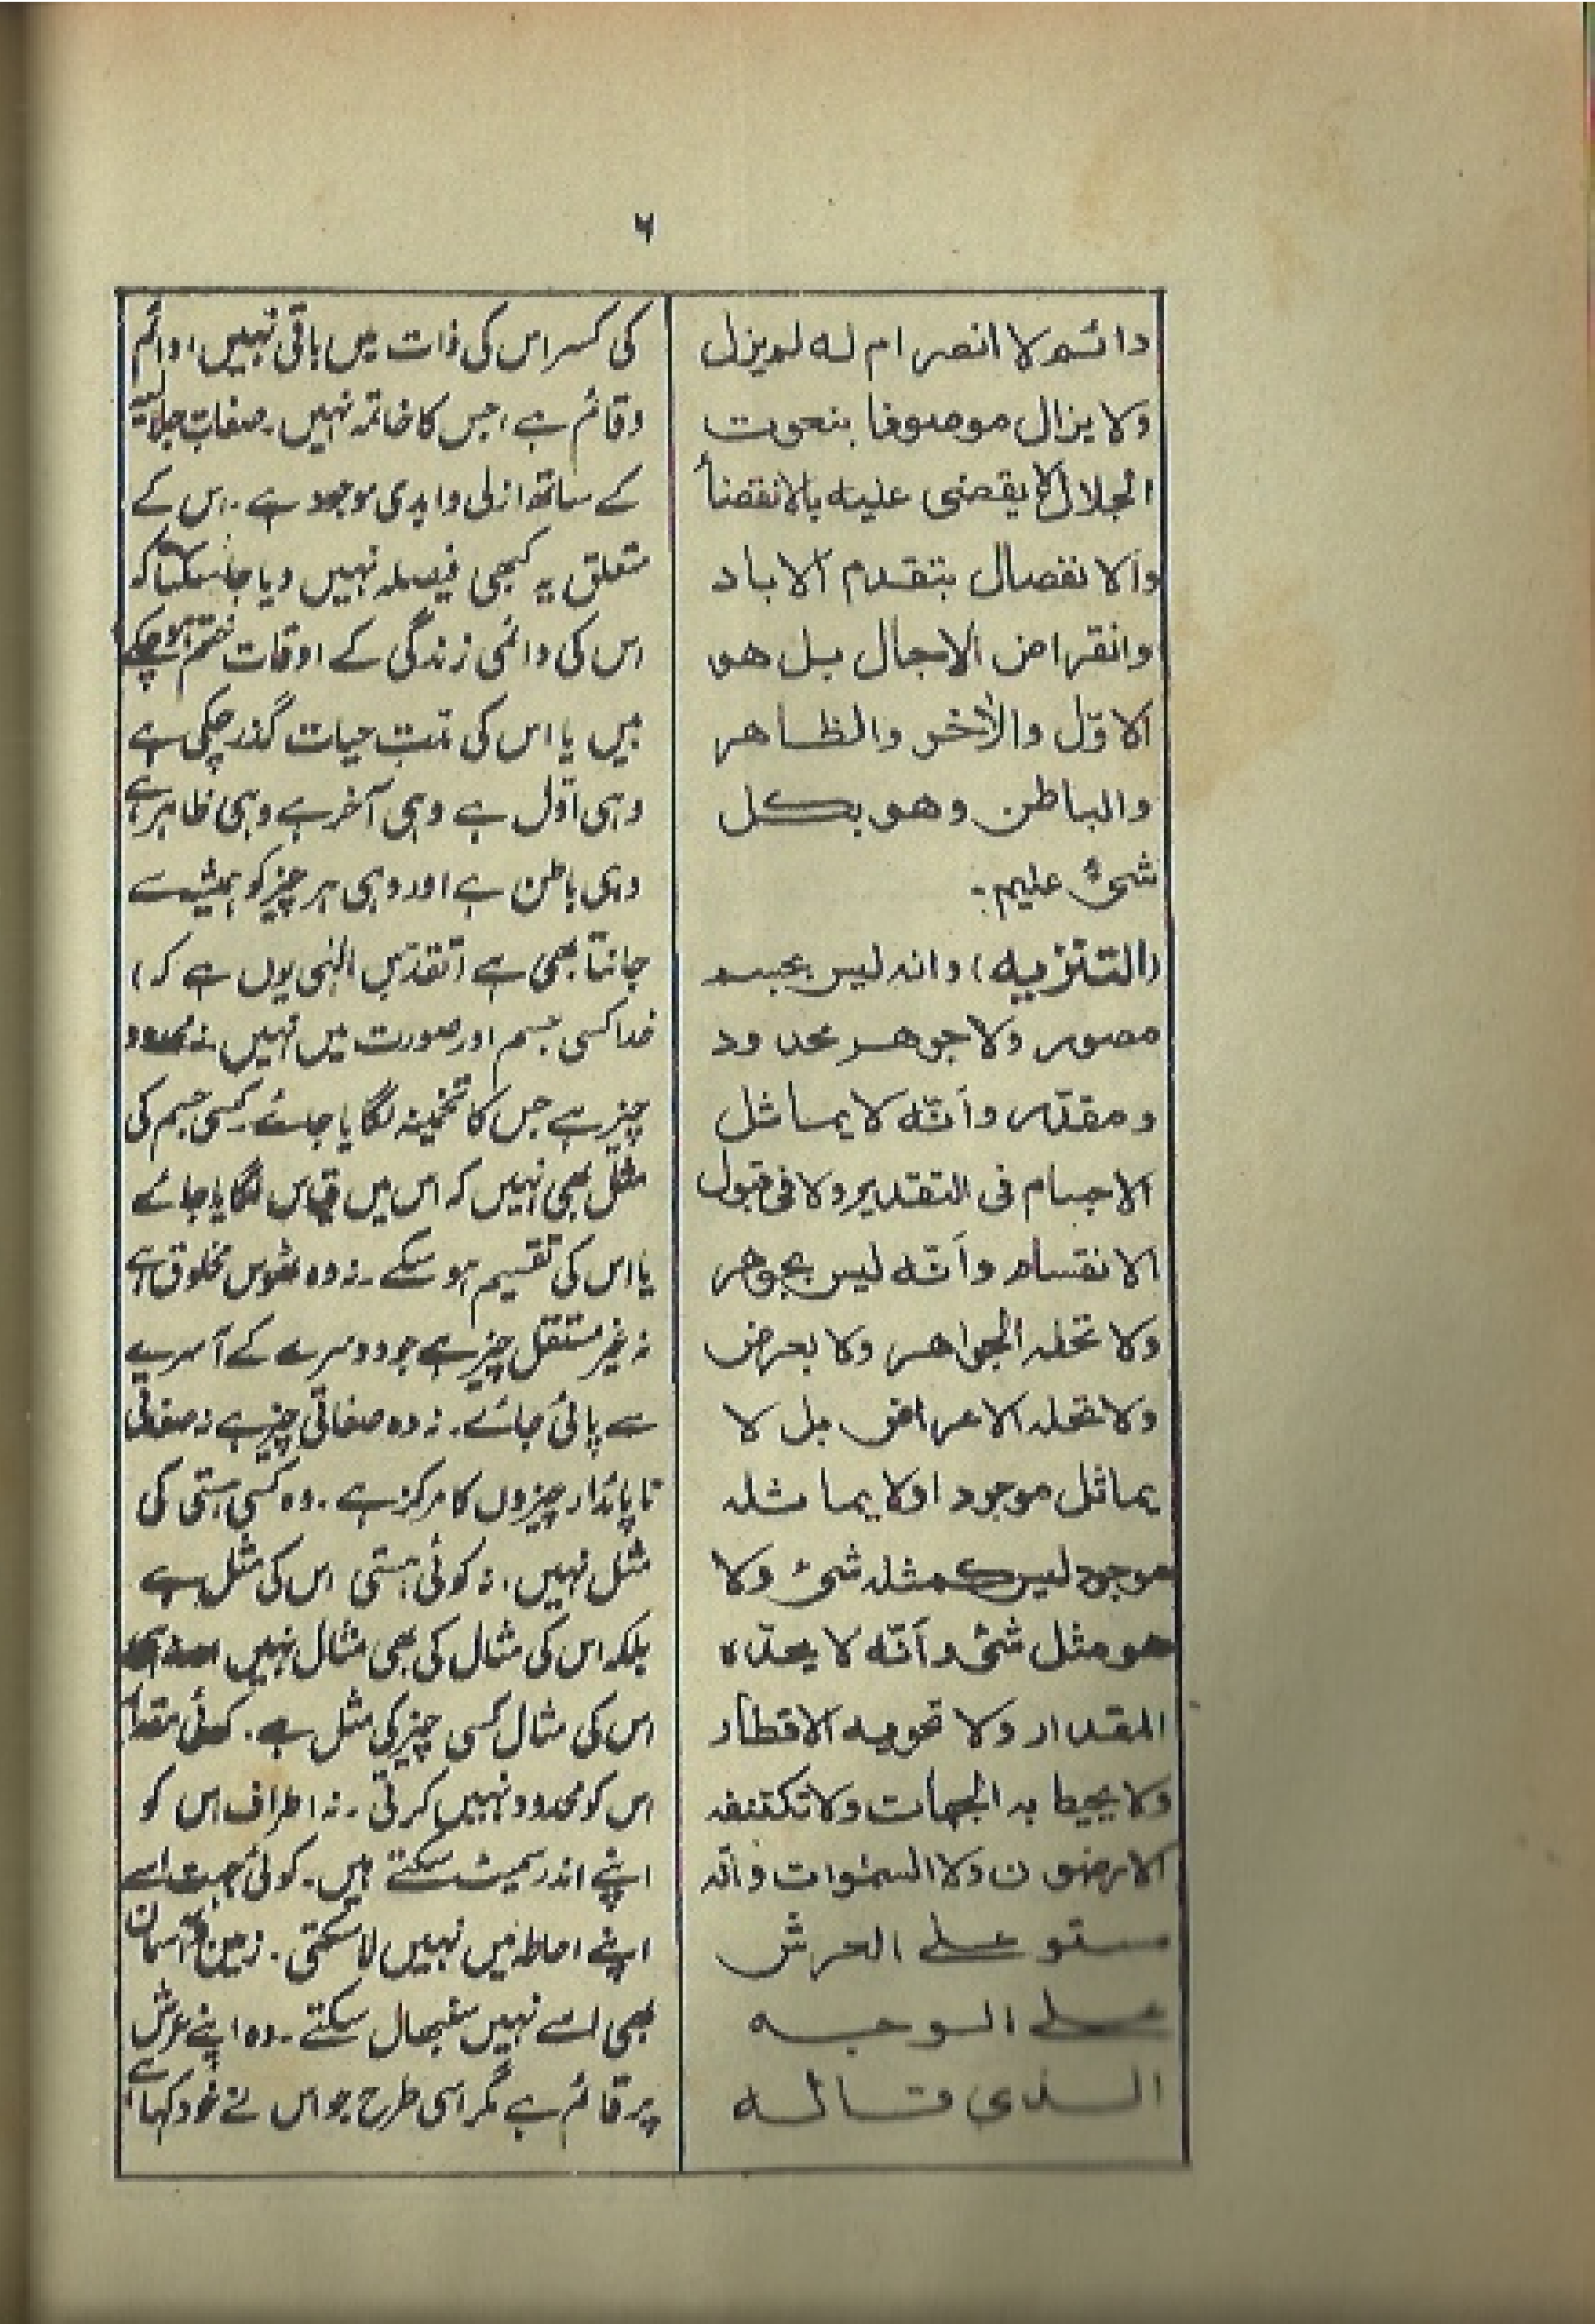 ۶
دائم لا انصرام له لم يزل
ولا يزال موصوفا بنعوت
الجلال لا يقضى عليه بالانقضأ
والانفصال بتقدم الاباد
وانقراض الاجال بل هو
الاوّل والأخر والظاهر
والباطن وهو بكل
شئ عليم۔
(التنزيه) وانه ليس بجسم
مصور ولا جوهر محدود
ومقدر وأنّه لا يماثل
الاجسام فى التقدير ولا فى قبول
الانقسام وأنّه ليس بجوهر
ولا تحله الجواهر ولا بعرض
ولا تحله الاعراض بل لا
يماثل موجودا ولا يماثله
موجود ليس كمثله شئ ولا
هو مثل شئ وأنّه لا يحدّه
المقدار ولا تحويه الاقطار
ولا يحيط به الجهات ولا تكتنفه
الارضون ولا السموات وأنّه
مستو على العرش
على الوجه
الذى قاله
کی کسر اس کی ذات میں باقی نہیں، دائم
وقائم ہے، جس کا خاتمہ نہیں۔ صفات جلالیۃ
کے ساتھ ازلی وابدی موجود ہے۔ اس کے
متعلق یہ کبھی فیصلہ نہیں دیا جا سکتا کہ
اس کی دائمی زندگی کے اوقات ختم ہو چکے
ہیں یا اس کی مدت حیات گذر چکی ہے
وہی اوّل ہے وہی آخر ہے وہی ظاہر ہے
وہی باطن ہے اور وہی ہر چیز کو ہمیشہ سے
جانتا بھی ہے (تقدیس الٰہی یوں ہے کہ)
خدا کسی جسم اور صورت میں نہیں نہ محدود
چیز ہے جس کا تخمینہ لگایا جائے۔ کسی جسم کی
مثل بھی نہیں کہ اس میں قیاس لگایا جائے
یا اس کی تقسیم ہو سکے۔ نہ وہ ٹھوس مخلوق ہے
نہ غیر مستقل چیز ہے جو دوسرے کے آسرے
سے پائی جائے۔ نہ وہ صفاتی چیز ہے نہ صفاتی
ناپائدار چیزوں کا مرکز ہے۔ وہ کسی ہستی کی
مثل نہیں، نہ کوئی ہستی اس کی مثل ہے
بلکہ اس کی مثال کی بھی مثال نہیں
اس کی مثال کسی چیز کی مثل ہے۔ کوئی مقدار
اس کو محدود نہیں کرتی۔ نہ اطراف اس کو
اپنے اندر سمیٹ سکتے ہیں۔ کوئی جہت اسے
اپنے احاطہ میں نہیں لا سکتی۔ زمین و آسمان
بھی اسے نہیں سنبھال سکتے۔ وہ اپنے عرش
پر قائم ہے مگر اسی طرح جو اس نے خود کہا ہے